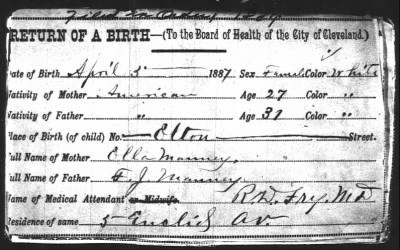 RETURN OF A BIRTH—(To the Board of Health of the City of Cleveland.)
Date of Birth April 3 1887 Sex Female Color White
Nativity of Mother American Age 27 Color "
Nativity of Father " Age 31 Color "
Place of Birth (of child) No. Elton Street.
Full Name of Mother Ella Manney
Full Name of Father F. J. Manney
Name of Medical Attendant or Midwife. R. D. Fry, MD
Residence of same 5 Euclid Av.